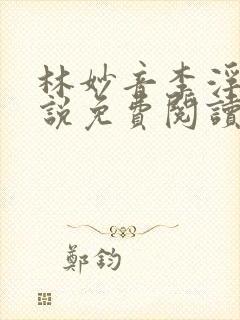 林妙音李淫
說免費閱讀
鄭鈞